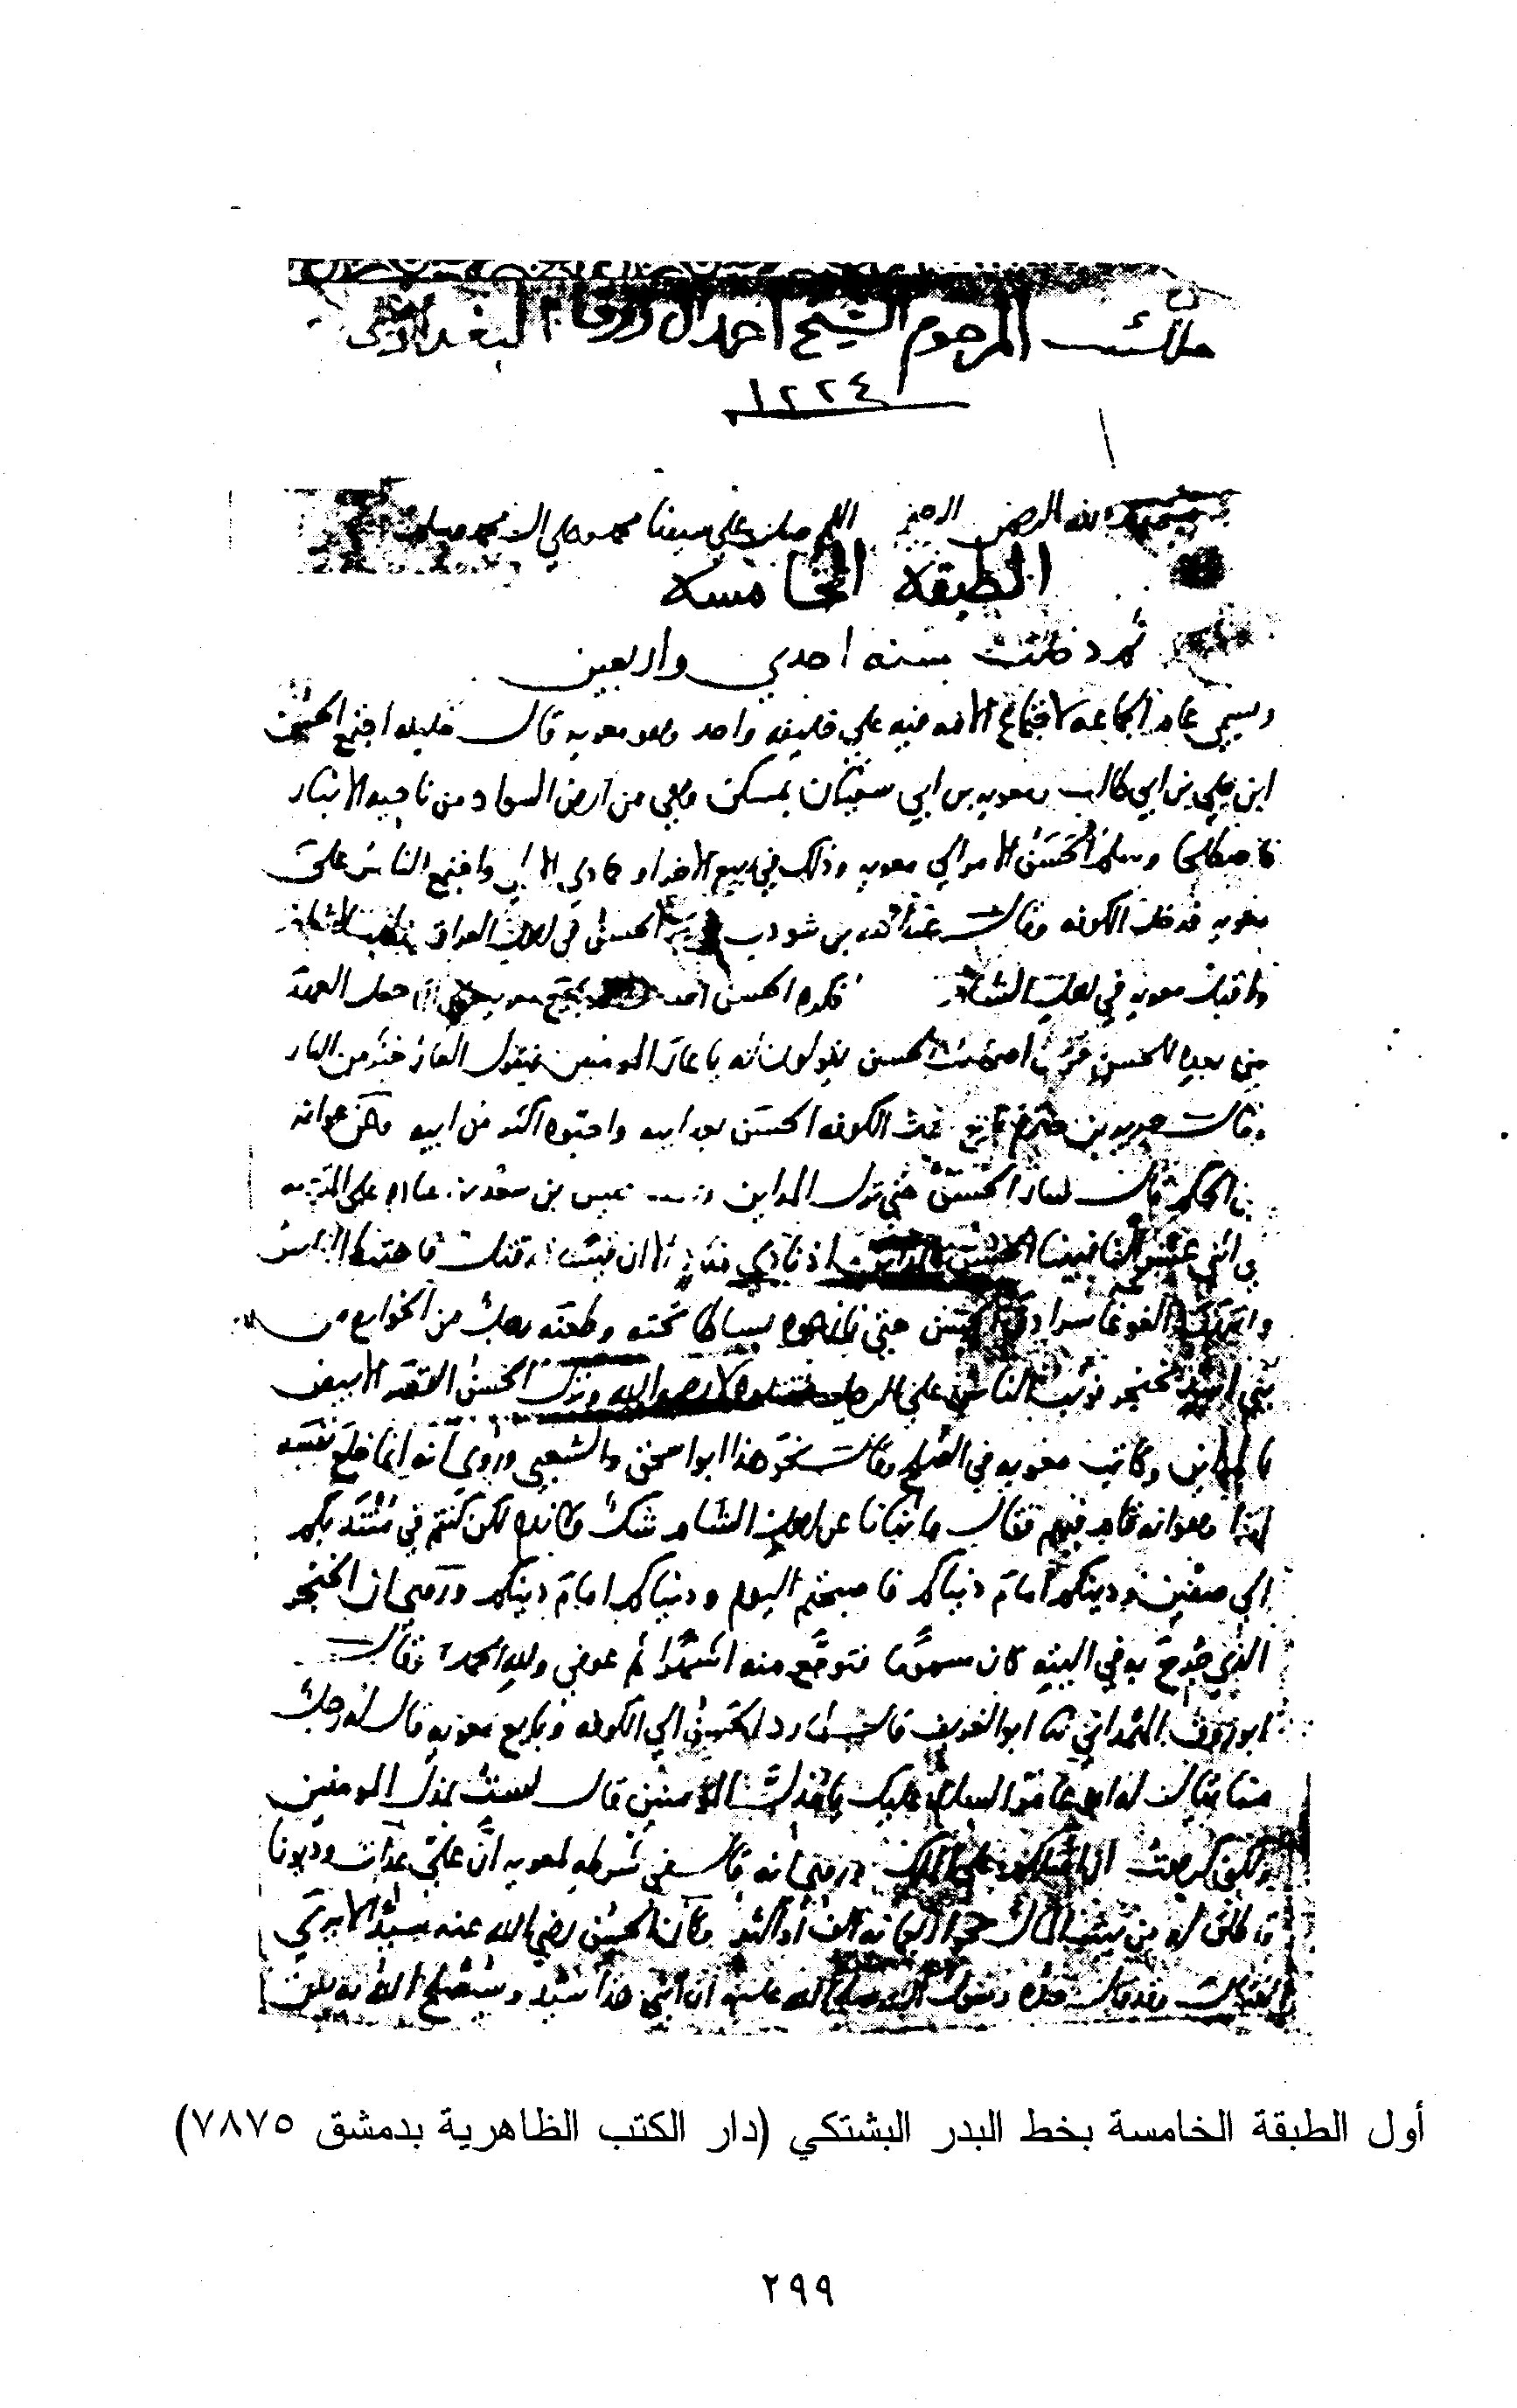 ملك المرحوم الشيخ احمد البغدادي
١٢٢٤
الله الرحمن الرحيم اللهم صل على سيدنا محمد وعلى ال محمد وسلم
الطبقة الخامسة
ثم دخلت سنه احدي واربعين
ويسمي عام الجماعه لاجتماع الامه فيه علي خليفه واحد وهو معويه قال خليفه اجتمع الحسن
ابن علي بن ابي طالب ومعويه بن ابي سفيان بمسكن وهي من ارض السواد من ناحيه الانبار
فاصطلحا وسلم الحسن الامر الي معويه وذلك في ربيع الاخر او جمادي الاولي واجتمع الناس على
معويه فدخل الكوفه وقال عبد الله بن شوذب سار الحسن في اهل العراق يطلب الشام
واقبل معويه في اهل الشام فكره الحسن القتال وبايع معويه على ان جعل العهد
من بعده للحسن فكان اصحاب الحسن يقولون له يا عار المومنين فيقول العار خير من النار
وقال جرير بن حازم بايع اهل الكوفه الحسن بعد ابيه واحبوه اكثر من ابيه وعن عوانه
بن الحكم قال سار الحسن حتي نزل المداين وبعث قيس بن سعد بن عباده على المقدمه
في اثني عشر الفا فبينا الحسن بالمداين اذ نادي مناد الا ان قيسا قد قتل فاختبط الناس
وانتهب الغوغا سرادق الحسن حتي نازعوه بساطا تحته وطعنه رجل من الخوارج من
بني اسد بخنجر فوثب الناس علي الرجل فقتلوه لا رحمه الله ونزل الحسن القصر الابيض
بالمداين وكاتب معويه في الصلح وقال نحو هذا ابو اسحق والشعبي وروي انه انما خلع نفسه
لهذا وهو انه قام فيهم فقال ما ثنانا عن اهل الشام شك ولا ندم لكن كنتم في منتدبكم
الي صفين ودينكم امام دنياكم فاصبحتم اليوم ودنياكم امام دينكم وروي ان الخنجر
الذي جرح به في اليته كان مسموما فتوجع منه اشهرا ثم عوفي ولله الحمد وقال
ابو روق الهمداني ثنا ابو الغريف قال لما رد الحسن الي الكوفه وبايع معويه قال له رجل
منا يقال له ابو عامر السلام عليك يا مذل المومنين قال لست بمذل المومنين
ولكني كرهت ان اقتلكم على الملك وروي انه قال في شرطه لمعويه ان علي عدات وديونا
فاطلق له من بيت المال نحو اربعمايه الف او اكثر وكان الحسن رضي الله عنه سيدا لا يري
القتال وقد قال جده رسول الله صلى الله عليه ان ابني هذا سيد وسيصلح الله به بين
أول الطبقة الخامسة بخط البدر البشتكي (دار الكتب الظاهرية بدمشق ٧٨٧٥)
٢٩٩